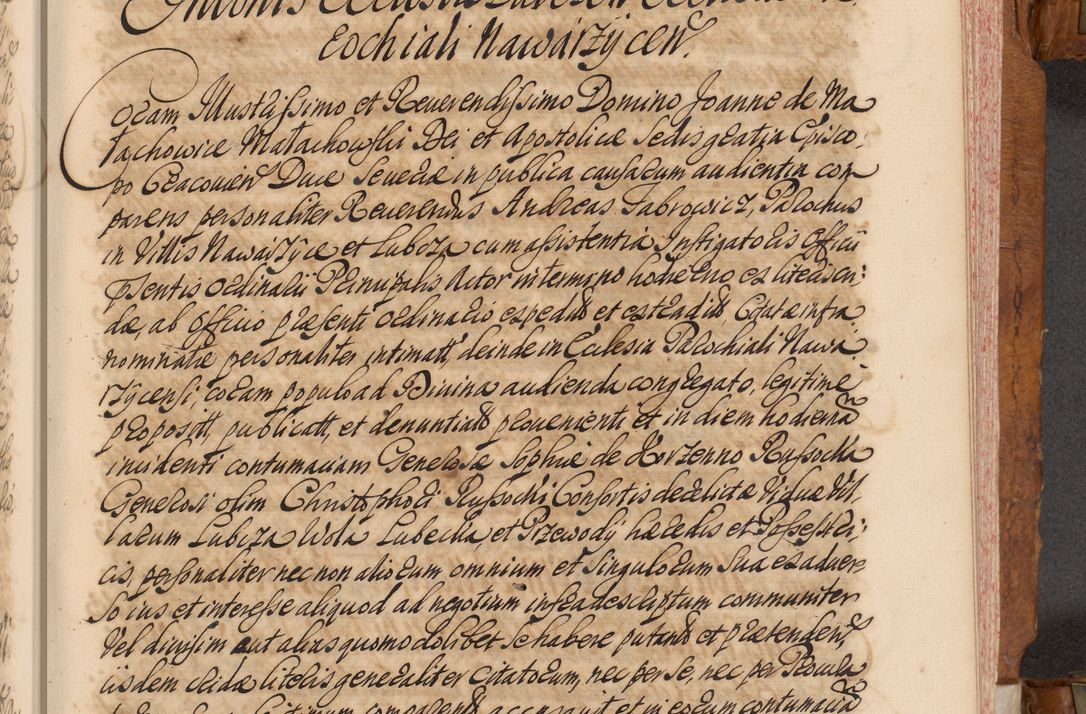 rochiali Nawarzycen.
Coram Illustrissimo et Reuerendissimo Domino Joanne de Ma
łachowice Małachowski Dei et Apostolicæ Sedis gratia Episco:
po Cracovien Duce Severiæ in publica causarum audientia com
parens personaliter Reuerendus Andreas Fabrowicz, Parochus
in Villis Nawarzyce et Lubcza cum assistentia Instigatoris Officii
psentis ordinarii Principalis Actor in termino hodierno, ex literis en:
dæ, ab Officio præsenti ordinario expedit et extradit, Citatæ infra
nominatæ personaliter intimatt, deinde in Ecclesia Parochiali Nawa
rzycensi, coram populo ad Divina audienda congregato, legitime
proposit, publicatt, et denuntiatt prouenienti et in diem hodierna
incidenti contumaciam Generosæ Sophiæ de Xrzenno Russocka
Generosi olim Christophori Russocki Consortis derelictæ Viduæ Vil
larum Lubcza Wola Lubecka, et Przewody hæredis et Possestri:
cis, personaliter nec non aliorum omnium et Singulorum Sua ex aduer
so ius et interesse aliquod ad negotium infrascriptum communiter
vel divisim aut alias quomodolibet se habere putan et prætenden,
iisdem literis generaliter Citatorum, nec per se, nec per Procura